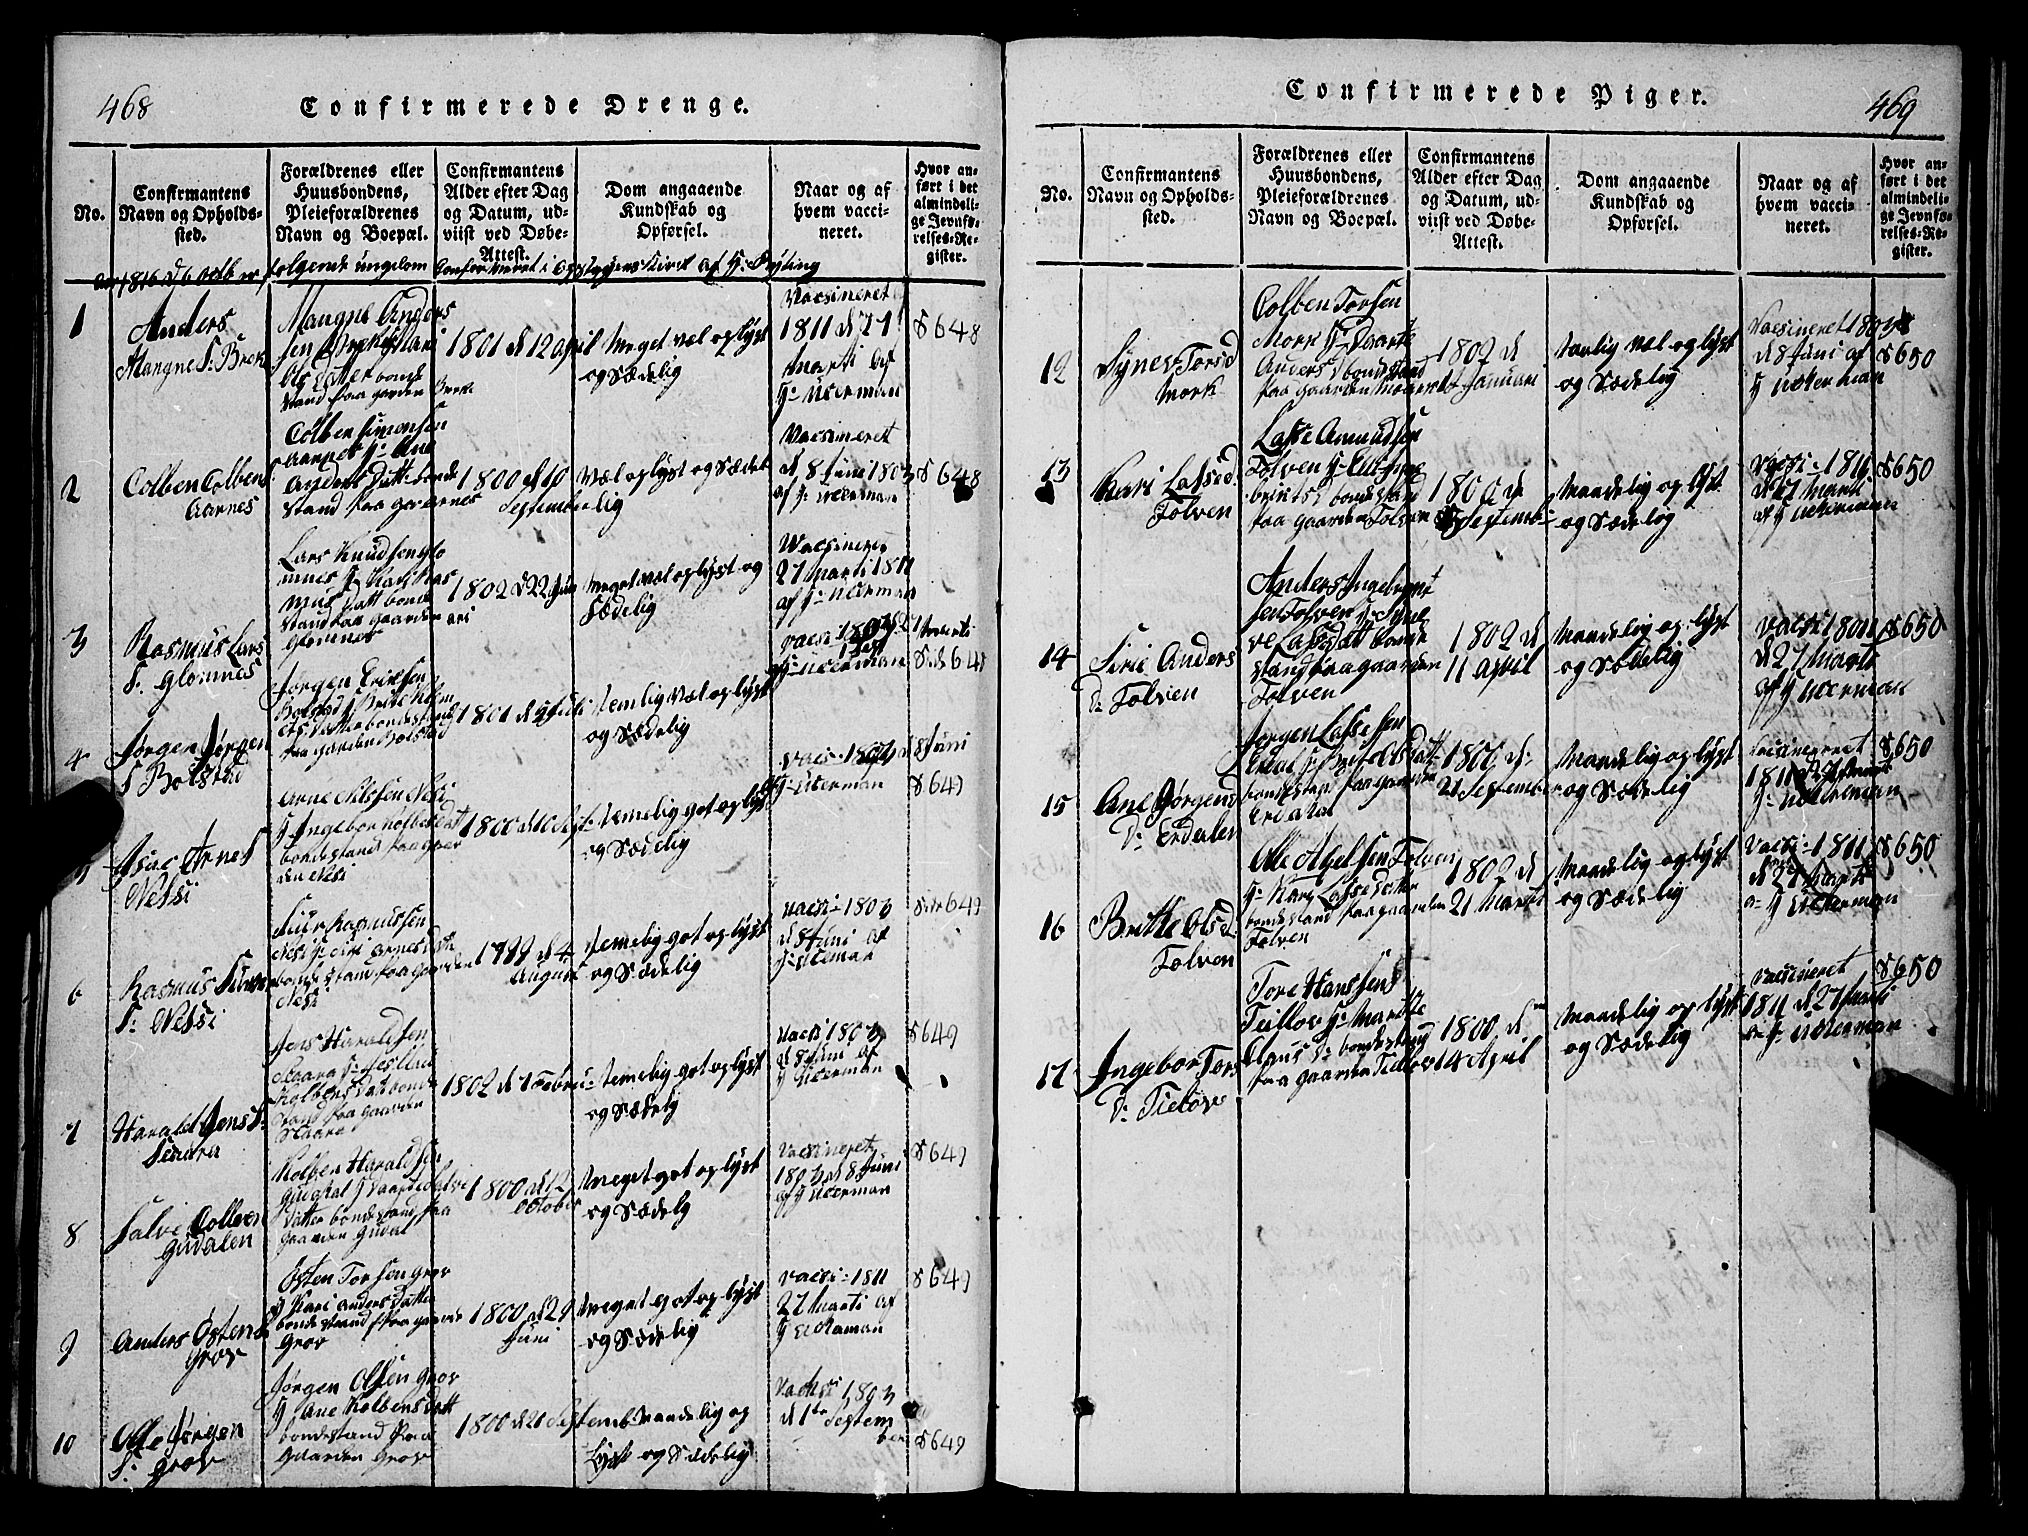 468
Confirmerede Drenge.
No.
Confirmantens
Navn og Opholds-
sted.
Forældrenes eller
Huusbondens,
Pleieforældrenes
Navn og Boepæl.
Confirmantens
Alder efter Dag
og Datum, ud-
viist ved Døbe-
Attest.
Dom angaaende
Kundskab og
Opførsel.
Naar og af
hvem vacci-
neret.
Hvor an-
ført i det
almindeli-
ge Jevnfø-
relses-Re-
gister.
1816 d 6 octb er følgende ungdom Confirmeret i
1
Anders
Mangne S: Brek
Mangne Anders
sen Brek
Ols Datter bonde
stand paa gaarden Brek
1801 d 12 april
Meget vel oplyst
og Sædelig
Vacsineret
1811 d 27
marti af
H: Ucerman
S 648
2
Colben Colbens
Aarnes
Colben Simonsen
Aarnes H: Ane
Anders Datt bonde
stand paa g Aarnes
1800 d 10
September
vel oplyst og Sædel
lig
Vacsineret
d 8 Juni 1803
af H: Ucerman
S 648
3
Rasmus Lars
S: Glomnes
Lars Knudsen Glo
mnes H Kari Ras
mus Datt bonde
stand paa gaarden
Glomnes
1802 d 22 Janu
ari
Meget vel oplyst og
Sædelig
Vacsineret
27 Marti 1811
af H: Ucerman
4
Jørgen Jørgen
S Bolstad
Jørgen Ericksen
Bolstad
Datter bondestand
paa gaarden Bolstad
1801 d 9 Juli
temlig vel oplyst
og Sædelig
H: Ucerman
5
Isac Arne S
Nessi
Arne Nilssen Nesi
H Ingebor
bondestand paa gaar
den Nesi
1800 d 10
temelig got oplyst
og Sædelig
vacs: 1803 d 8 Juni
H: Ucerman
S 649
6
Rasmus Siur
S: Nessi
Siur Rasmussen
Nesi H: Siri Arnes Dat
bondestand paa gaarden
Nesi
1799 d 4
August
temelig got oplyst
og Sædelig
vacsi: 1803
d 8 Juni af
H: Uceman
Side 649
7
Harald Jens S:
Skaara
Jens Haraldsen
Skaara H:
Kolbens Dat bonde
stand paa gaarden
Skaara
1802 d 1 Febru:
temelig got oplyst
og Sædelig
vacsi 1803
d 8 Juni af
H Ucerman
S 649
8
Salve Collben
Gudalen
Kolben Haraldsen
Gudalal
Datter bondestand paa
gaarden Gudal
1800 d 12
october
Meget got oplyst
og Sædelig
Vacsineret
1803 d 8 Juni
af H Ucerman
S 649
9
Anders Østens
Grov
Østen Torsen Grov
H Kari Anders Datter
bondestand paa gaarde
Grov
1800 d 29
Juni
Meget got oplyst
og Sædelig
vacsi: 1811
27 Marti af
H Uckerman
S 649
10
Olle Jørgen
S: Grov
Jørgen Olssen Grov
H Ane Kolbens Datt
bondestand paa
Gaarden Grov
1800 d 21 Septemb
Maadelig op
lyst og Sædelig
Vacksi 1803
d 1te Septem
ber
S 649
Confirmerede Piger.
469
No.
Confirmantens
Navn og Opholds-
sted.
Forældrenes eller
Huusbondens,
Pleieforældrenes
Navn og Boepæl.
Confirmantens
Alder efter Dag
og Datum, ud-
viist ved Døbe-
Attest.
Dom angaaende
Kundskab og
Opførsel.
Naar og af
hvem vacci-
neret.
Hvor an-
ført i det
almindeli-
ge Jevnfø-
relses-Re-
gister.
12
Synev Torsd
Mork
Colben Torsen
Mork H: Daarte
Anders D bondestand
paa gaarden Mork
1802 d
1 Januari
temlig vel oplyst
og Sædelig
Vacsineret 1803
d 8 Juni af
H Uckerman
S 650
13
Kari Lassed.
Tolven
Lasse Amundsen
Tolven H:
bondestand
paa gaarden Tolven
1800 d
Septemb:
Maadelig oplyst
og Sædelig
Vacsi: 1816
d 27 Marti
af H Uckerman
S 650
14
Sirie Anders
D: Tolven
Anders Ingebrigt
sen Tolven H: Syne
ve Lassedatt bonde
stand paa gaarden
Tolven
1802 d
11 april
Maadelig oplyst
og Sædelig
Vacsi 1811
d 27 Marti
af H Ucerman
S 650
15
Ane Jørgens
D: Erdalen
Jørgen Lassesen
Erdal H: Olsdatt
bondestan paa gaarden
Erdalal
1800 d:
21 September
Maadelig oplyst
og Sædelig
vacsineret
1811 d 27 Marti
H: Uckerman
S 650
16
Brithe Olsd.
Tolven
Olle Apelsen Tolven
H: Kari Lasse Datter
bondestand paa gaarden
Tolven
1802 d
21 Marti
Maadelig oplyst
og Sædelig
Vacsi: 1811
d 27 Marti
H Ucerman
S 650
17
Ingebor Tors
D: Tielov
Tore Hanssen
Teillov H: Marthe
Claus D: bondestand
paa gaarden Tiellov
1800 d
14 April
Maadelig oplyst
og Sædelig
Vacsineret
1811 d 27 Marti
H: Uckerman
S 650